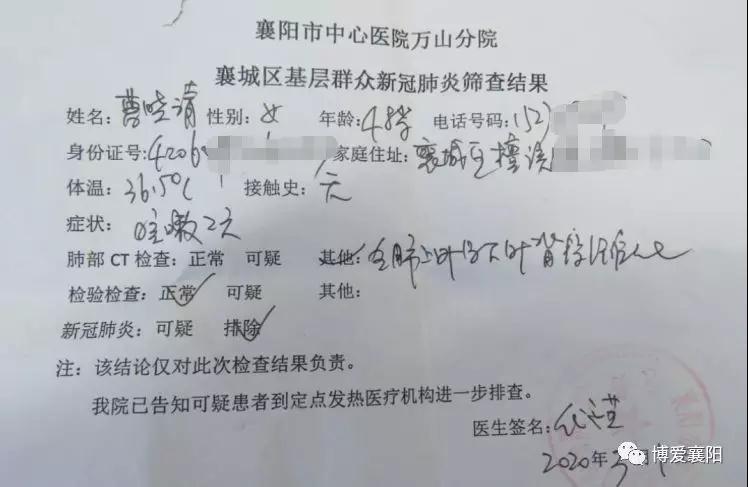 襄阳市中心医院万山分院
襄城区基层群众新冠肺炎筛查结果
姓名：曹晓清 性别：女 年龄：48岁 电话号码：152
身份证号：4206 家庭住址：襄城区檀溪
体温：36.5℃ 接触史：无
症状：咳嗽2天
肺部 CT 检查：正常 可疑 其他：
检验检查：正常 可疑 其他：
新冠肺炎：可疑 排除
注：该结论仅对此次检查结果负责。
我院已告知可疑患者到定点发热医疗机构进一步排查。
医生签名：
2020年3月
博爱襄阳